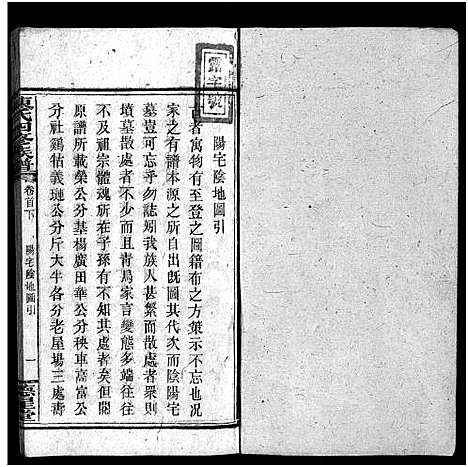 陽宅陰地圖引
古者寓物有至登之圖籍布之方策示不忘也况
家之有譜本源之所自出既圖其代次而陰陽宅
墓豈可忘乎勿誌矧我族人甚繁而散處者眾則
墳墓散處者不一而且青烏家言變態多端往往
不及祖宗體魂所在子孫有不知其處者矣但閱
原譜所載榮公分基楊廣田華公分秧車高富公
分社鷄牯義璉公分斤大半各分老屋場三處青
氏四修族譜
卷首下
陽宅陰地圖引
一